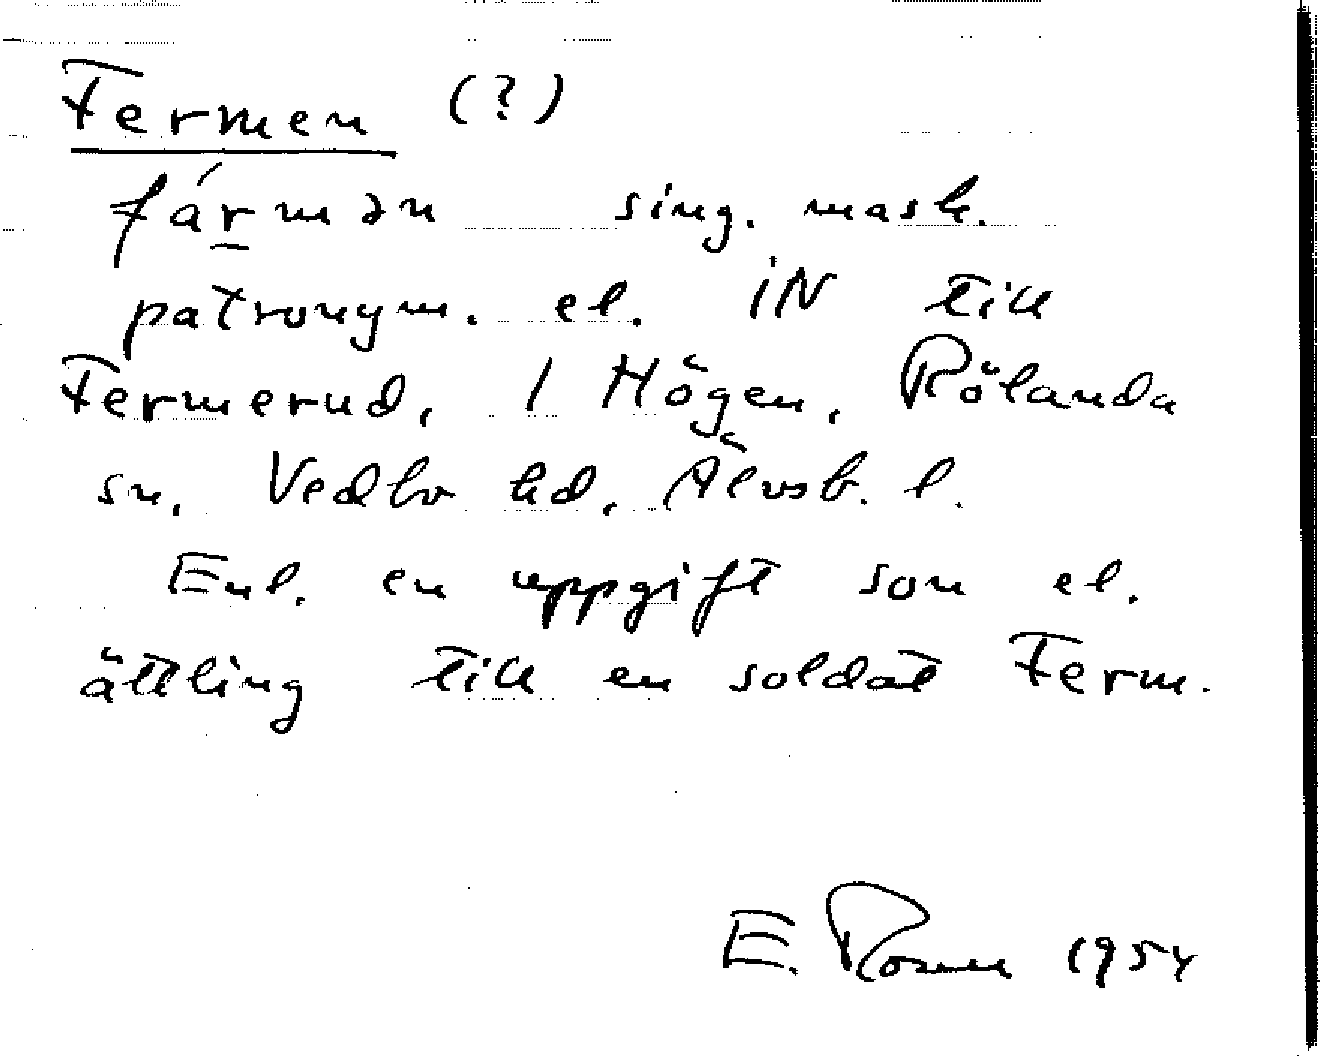 Fermen (?)
fármən sing. mask.
patronym. el. IN till
Fermerud, 1 Högen, Rölanda
sn, Vedbo hd, Älvsb. l.
Enl. en uppgift son el.
ättling till en soldat Ferm.
E. 1954